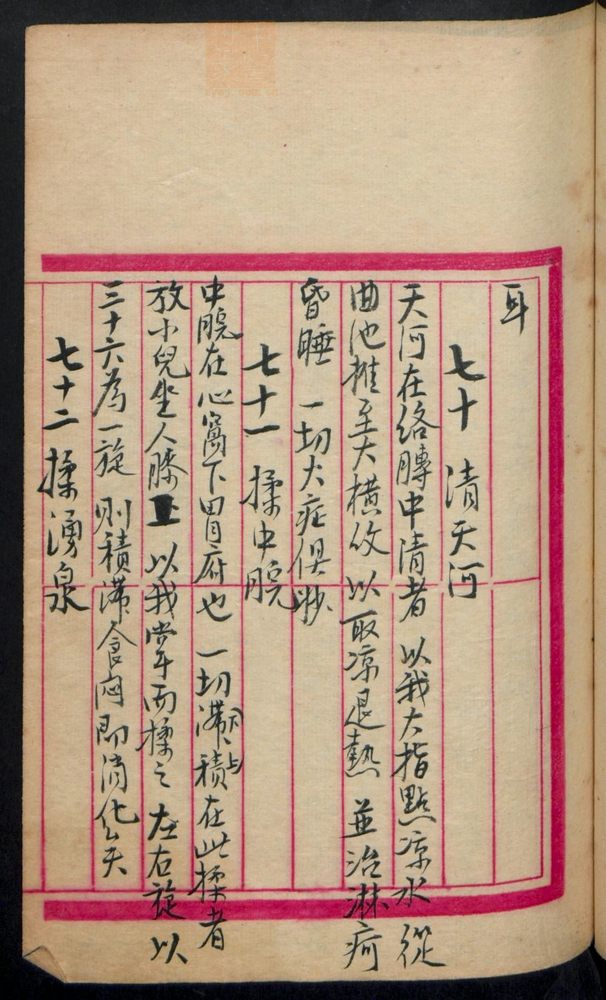 耳
七十 清天河
天河在络膊中清者 以我大指點凉水從
曲池推至大橫紋 以取凉退熱 並治淋疴
昏睡 一切火症俱妙
七十一 揉中脘
中脘在心窩下胃府也 一切滯積在此揉者
放小兒坐人膝上 以我掌而揉之 左右旋以
三十六為一旋 則積滯食闷即消化矣
七十二 揉湧泉